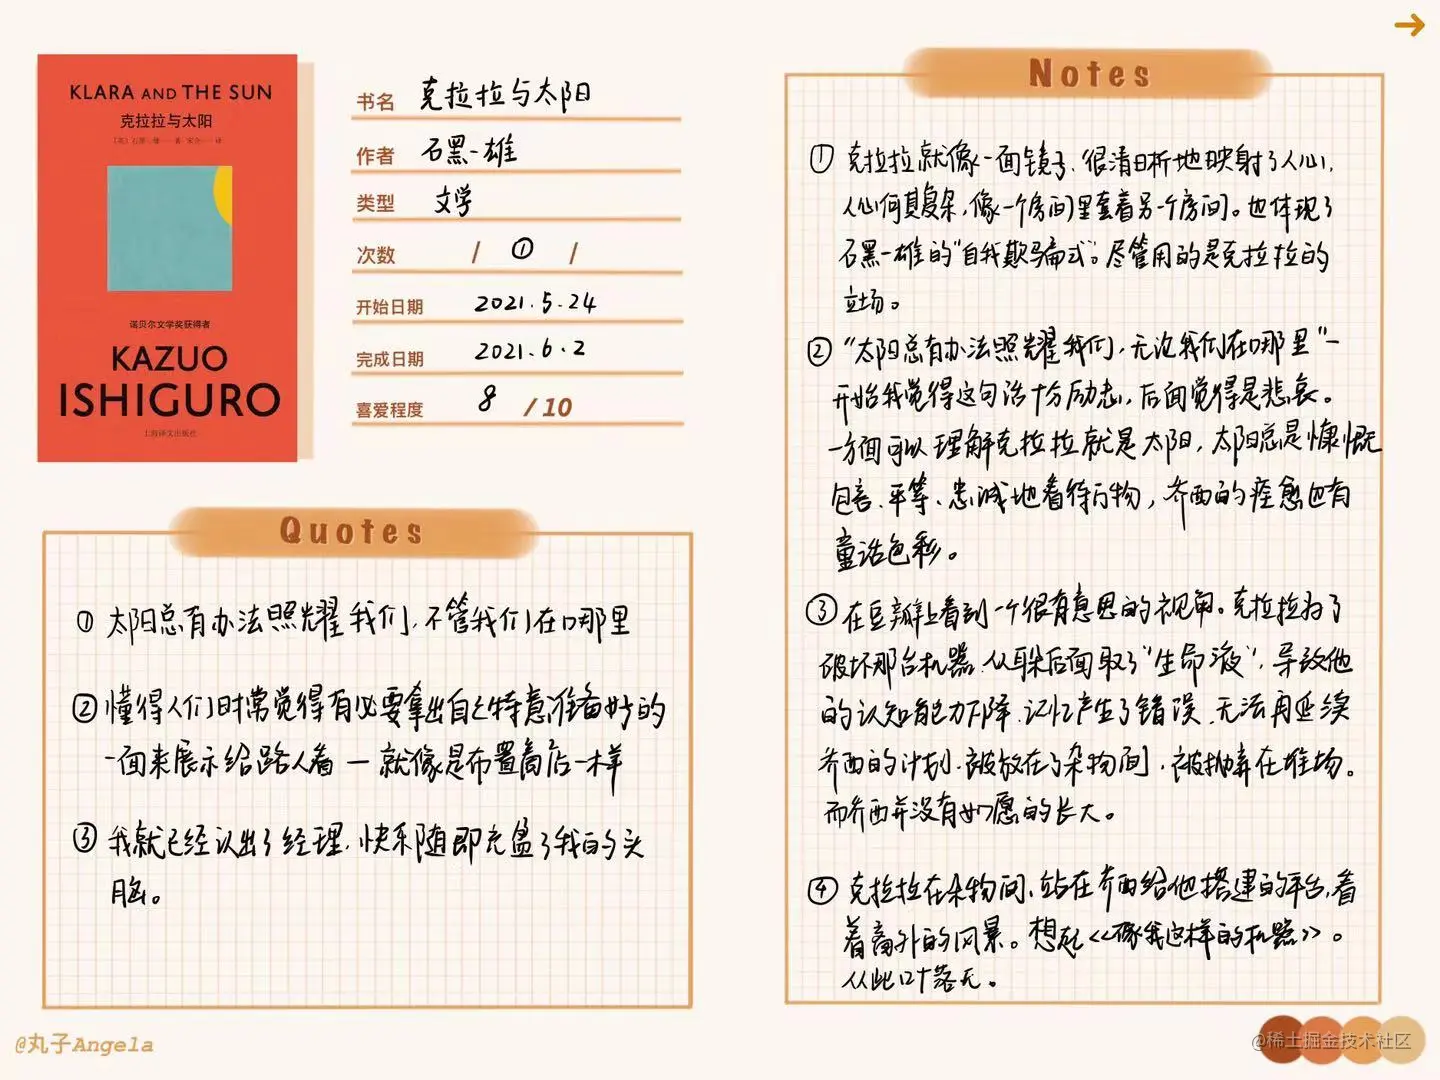 KLARA AND THE SUN
克拉拉与太阳
诺贝尔文学奖获得者
KAZUO
ISHIGURO
上海译文出版社
书名 克拉拉与太阳
作者 石黑一雄
类型 文学
次数 / ① /
开始日期 2021.5.24
完成日期 2021.6.2
喜爱程度 8 /10
Quotes
① 太阳总有办法照耀我们,不管我们在哪里
② 懂得人们时常觉得有必要拿出自己特意准备好的
一面来展示给路人看 — 就像是布置窗后一样
③ 我就已经认出了经理,快乐随即充盈了我的头
脑。
@丸子Angela
Notes
① 克拉拉就像一面镜子,很清晰地映射了人心,
人心何其复杂,像一个房间里套着另一个房间。也体现了
石黑一雄的"自我欺骗式"。尽管用的是克拉拉的
立场。
② "太阳总有办法照耀我们,无论我们在哪里"一
开始我觉得这句话十分励志,后面觉得是悲哀。
一方面可以理解克拉拉就是太阳,太阳总是慷慨
包容、平等、忠诚地看待万物,乔西的痊愈也有
童话色彩。
③ 在豆瓣上看到一个很有意思的视角。克拉拉为了
破坏那台机器,从耳朵后面取了"生命液",导致他
的认知能力下降,记忆产生了错误,无法再延续
乔西的计划,被放在了杂物间,被抛弃在堆场。
而乔西并没有如愿的长大。
④ 克拉拉在杂物间,站在乔西给他搭建的平台,看
着窗外的风景。想起《像我这样的机器》。
从此叶落无。
@稀土掘金技术社区